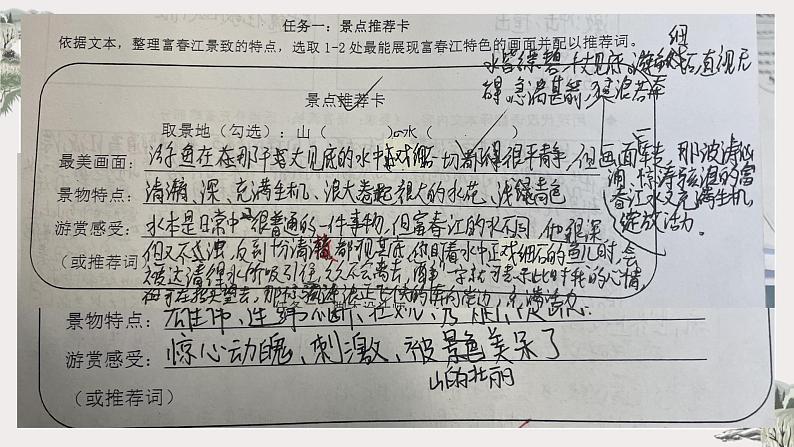 任务一：景点推荐卡
依据文本，整理富春江景致的特点，选取 1-2 处最能展现富春江特色的画面并配以推荐词。
水皆缥碧，千丈见底。游鱼细石，直视无
碍。急湍甚箭，猛浪若奔
景点推荐卡
取景地（勾选）：山（ ） 水（ ）
最美画面：游鱼在在那千丈见底的水中嬉戏 一切都得很平静，但画面一转，那波涛汹
涌、惊涛骇浪的富
春江水又充满生机，
绽放活力。
景物特点：清澈、深、充满生机、浪大卷起很大的水花、浅绿青色
游赏感受：水本是日常中很普通的一件事物，但富春江的水不同，他很深
（或推荐词 但又不浊，反到十分清澈，都现其底，你目清水中正戏细石的鱼儿时，会
被这清得水所吸引住，久久不会离去，
景物特点：雄伟、连绵不断、壮观、
游赏感受：惊心动魄、刺激、被景色美呆了
山的壮丽
（或推荐词）